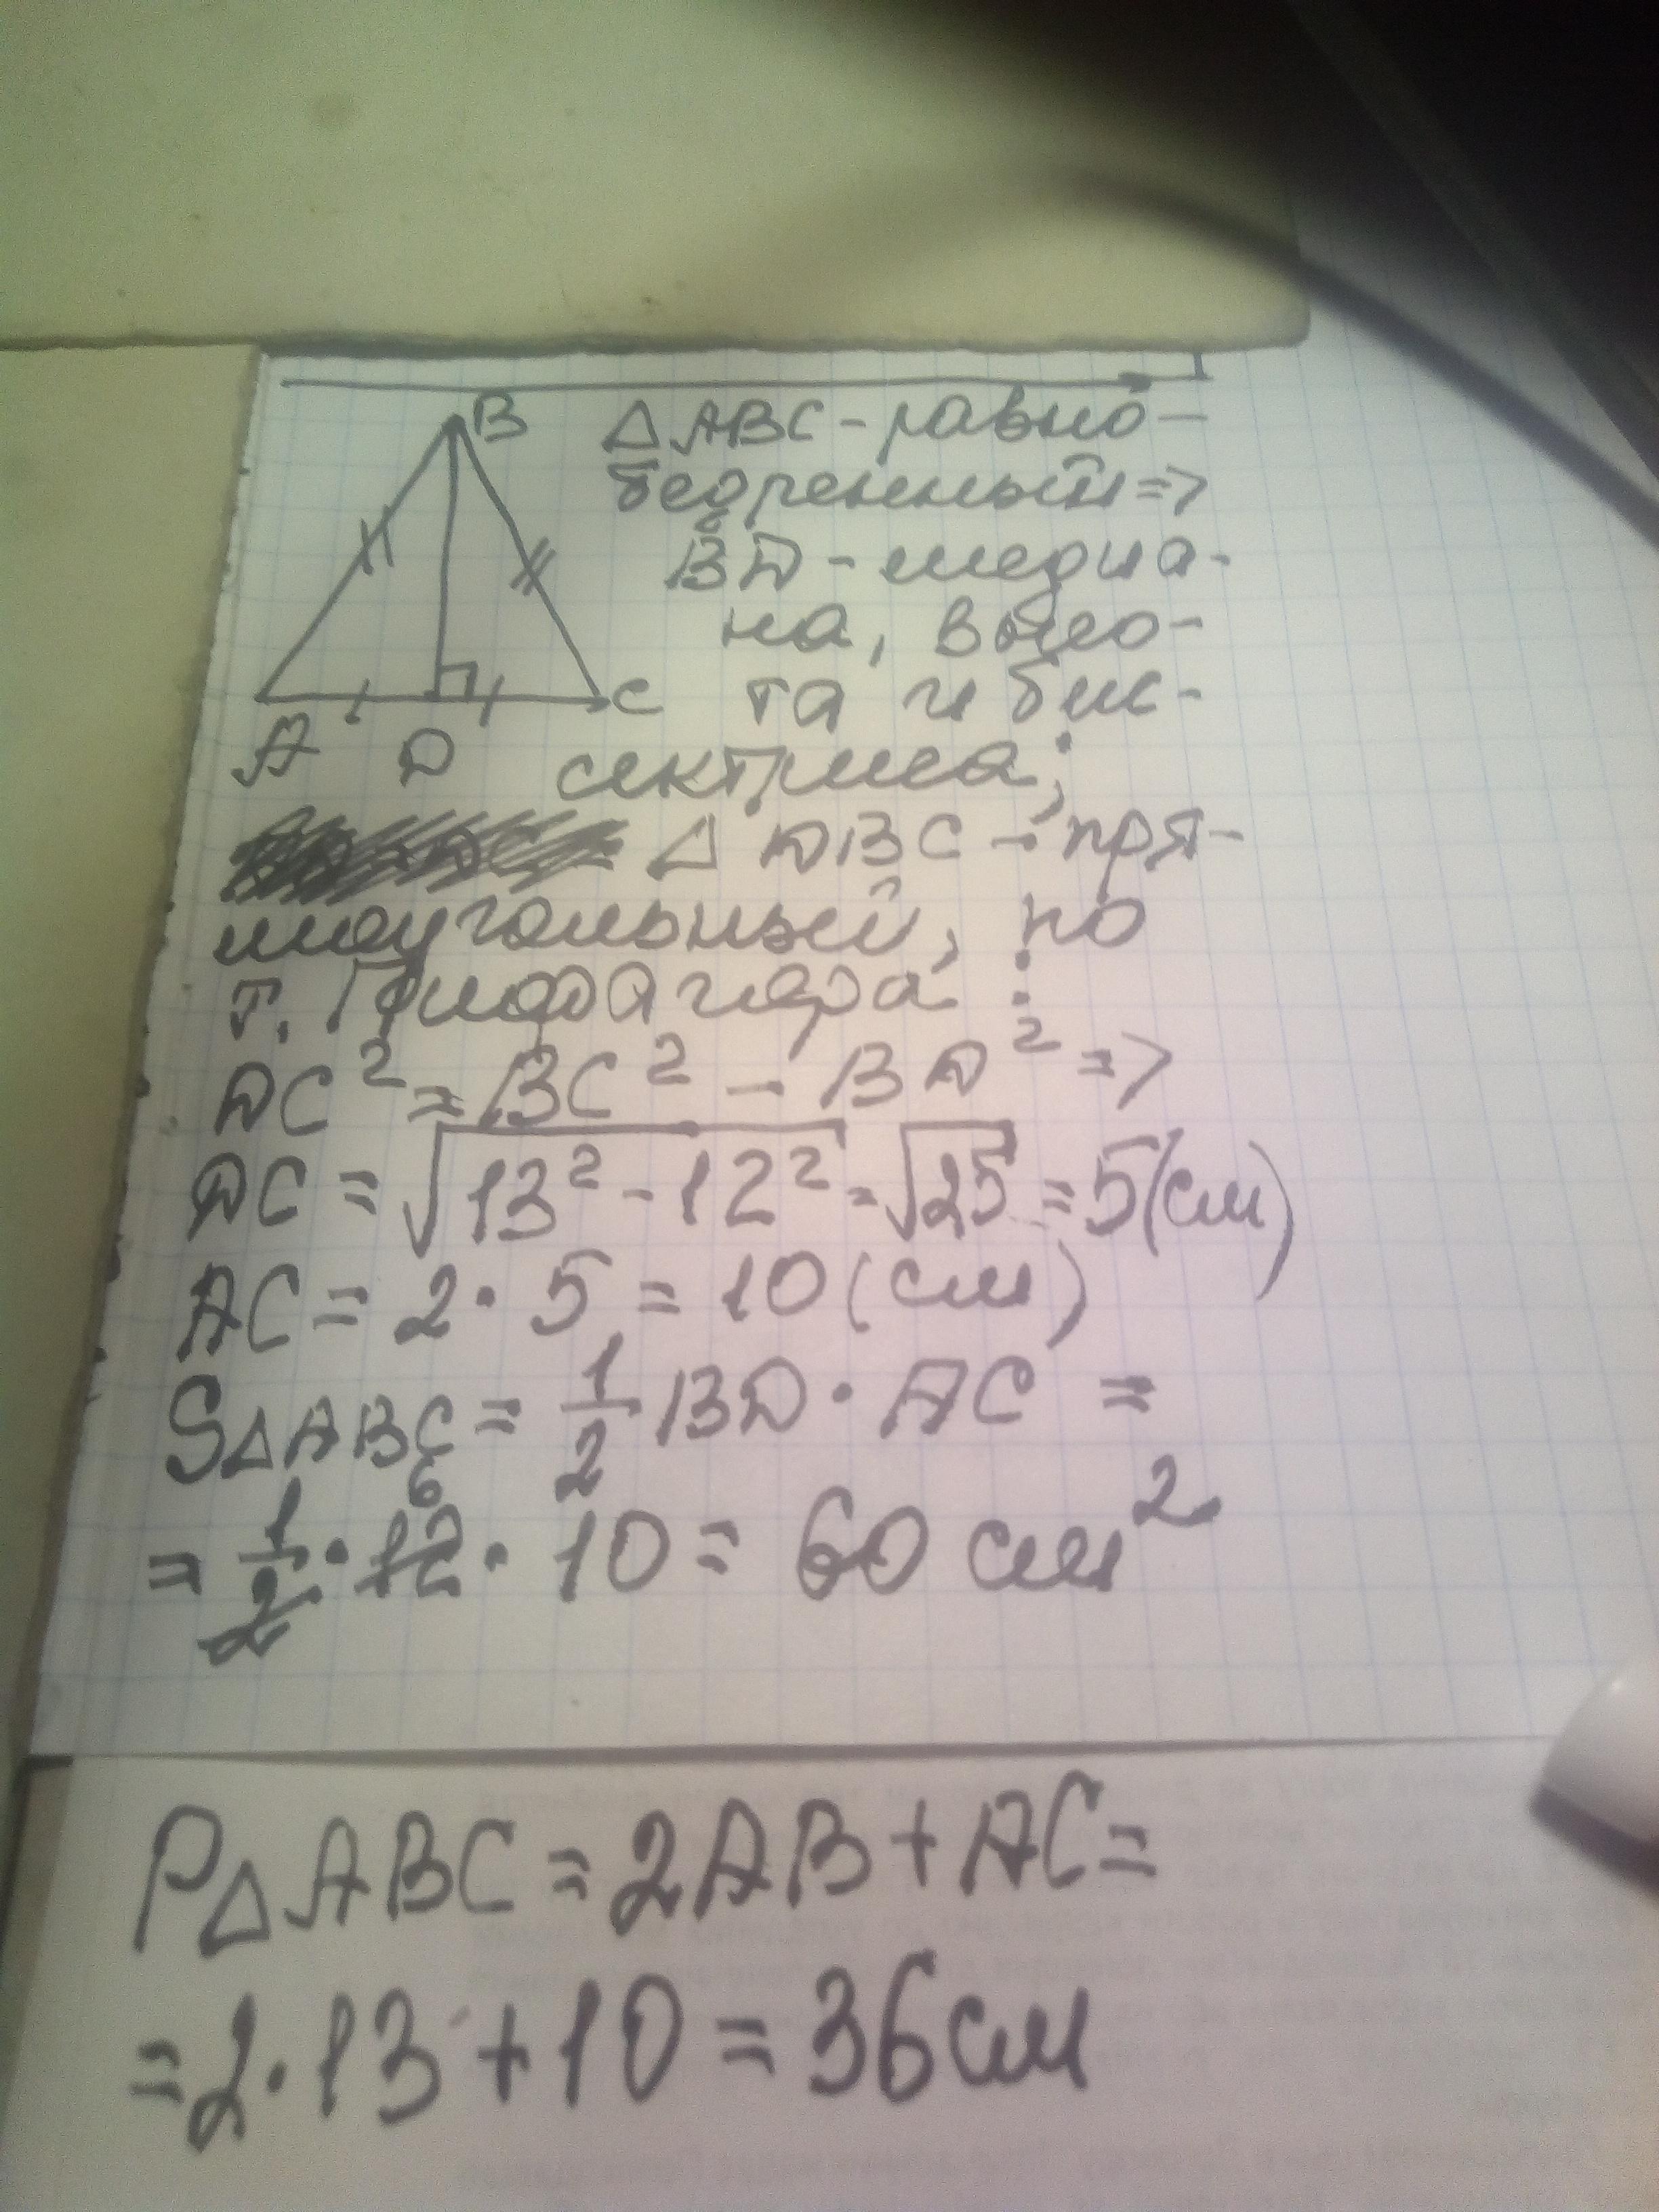 B
△ABC - равно-
бедренный =>
BD - медиа-
на, высо-
та и бис-
сектриса;
A D C
△DBC - пря-
моугольный, по
т. Пифагора:
DC² = BC² - BD² =>
DC = √13² - 12² = √25 = 5(см)
AC = 2 · 5 = 10 (см)
S△ABC = 1/2 BD · AC =
6
= 1/2 · 12 · 10 = 60 см²
P△ABC = 2AB + AC =
= 2 · 13 + 10 = 36 см